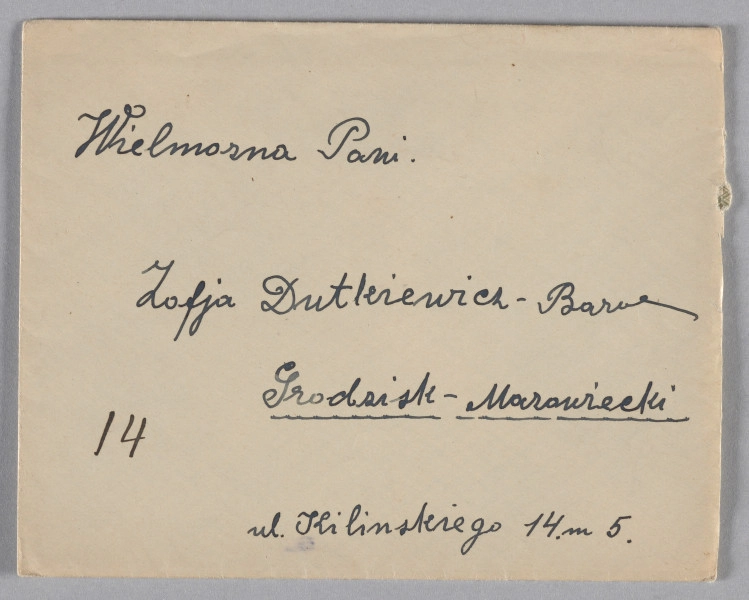 Wielmozna Pani.
Zofja Dutkiewicz-
Grodzisk-Mazowiecki
14
ul. Kilinskiego 14.m 5.